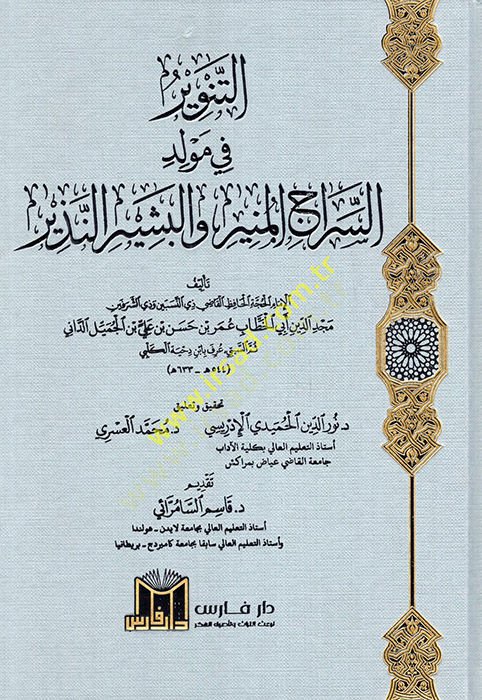 التَّنْوِيرُ
فِي مَوْلِدِ
السِّرَاجِ المُنِيرِ وَالبَشِيرِ النَّذِيرِ
تَأليفُ
الإمَامِ الحُجَّةِ الحَافِظِ القَاضِي ذِي النَّسَبَيْنِ وَذِي الشَّرَفَيْنِ
مَجْدِ الدِّينِ أَبِي الخَطَّابِ عُمَرَ بْنِ حَسَنِ بْنِ عَلِيِّ بْنِ الجُمَيِّلِ الدَّانِي
ثُمَّ السَّبْتِيِّ عُرِفَ بِابْنِ دِحْيَةَ الكَلْبِي
(٥٤٤هـ - ٦٣٣هـ)
تحقيق وتعليق
د. نُورُ الدِّين الحُمَيدِي الإدْرِيسِي د. مُحَمَّد العَسْرِي
أستاذ التعليم العالي بكلية الآداب
جامعة القاضي عياض بمراكش
تَقدِيم
د. قَاسِم السَّامَرَّائِي
أستاذ التعليم العالي بجامعة لايدن - هولندا
وأستاذ التعليم العالي سابقا بجامعة كامبردج - بريطانيا
دار فارس
دار فارس
لبعث التراث وتأصيل الفكر
www.irsad.com.tr